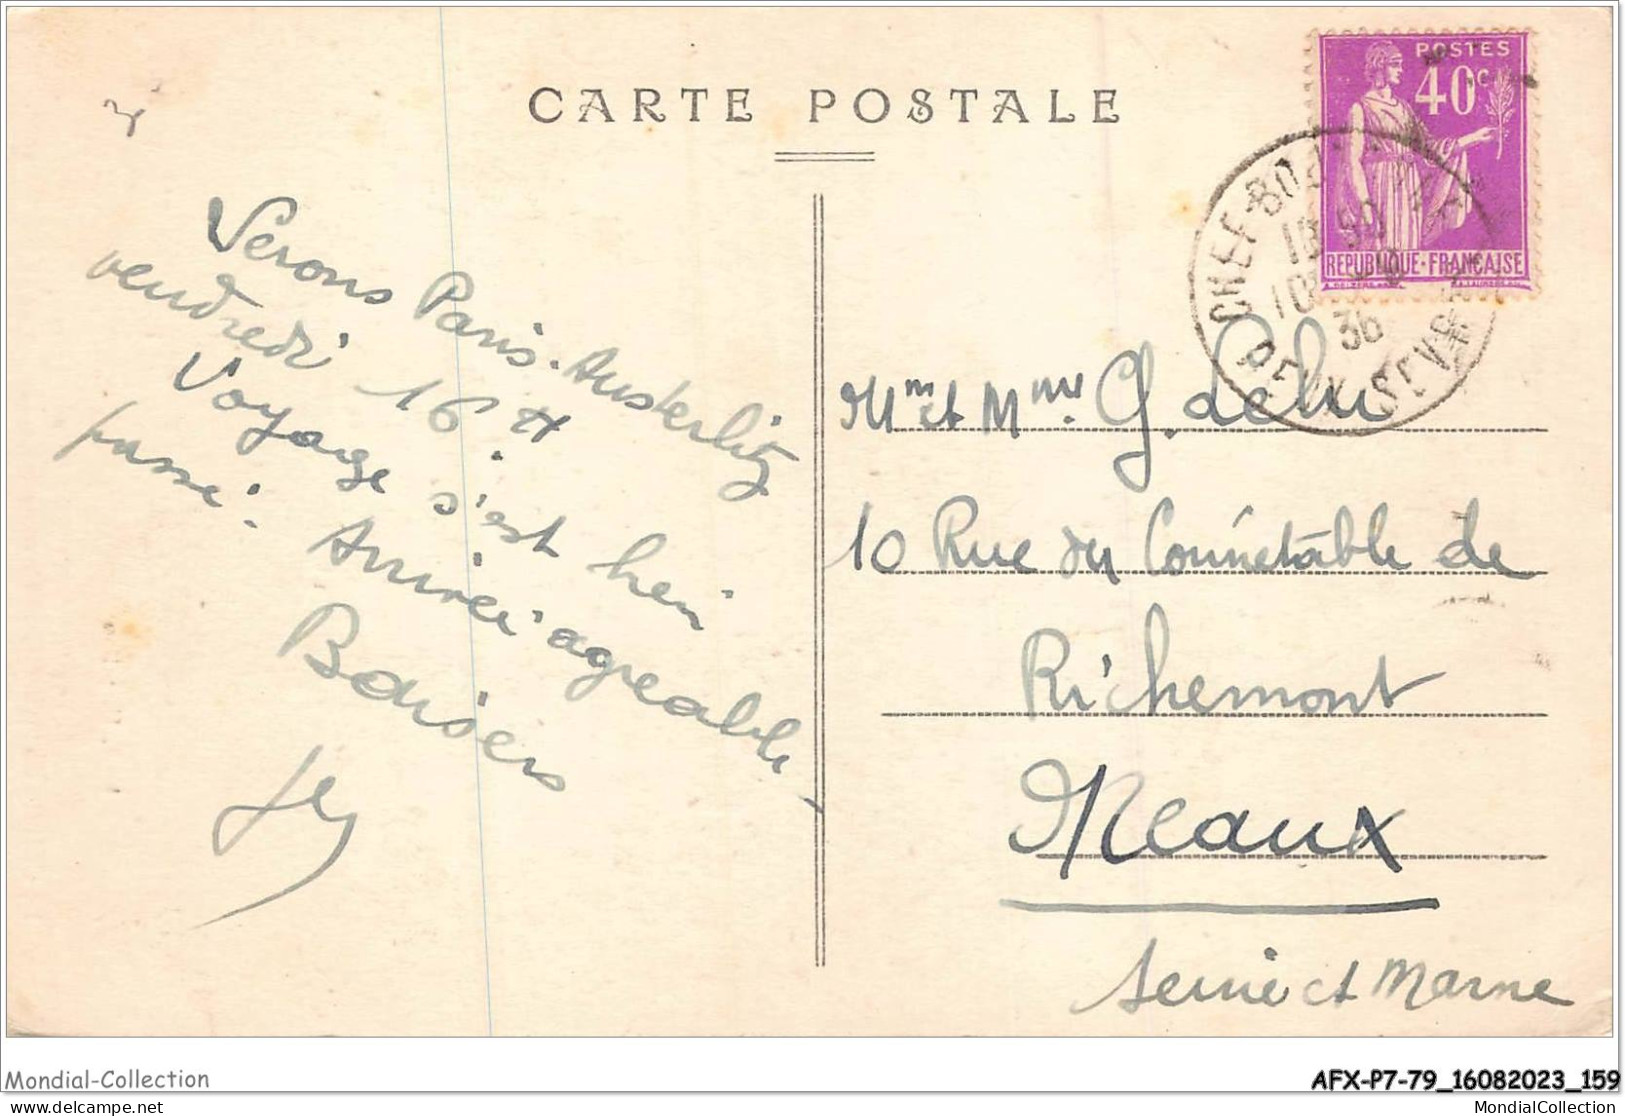 CARTE POSTALE
POSTES
40c
REPUBLIQUE-FRANÇAISE
CHEF-BOUTONNE
10
36
DEUX-SEVRES
Serons Paris-Austerlitz
vendredi 16 H.
Voyage s'est bien
passé. Arrivée agréable.
Baisers
Mr et Mme G.
10 Rue du Connétable de
Richemont
Meaux
Seine et Marne
Mondial-Collection
AFX-P7-79_16082023_159
MondialCollection